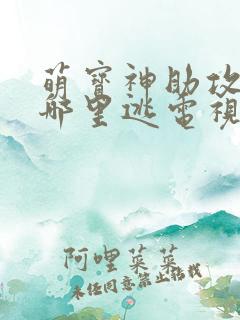 萌寶神助攻
哪里逃電視
阿哩菜菜
未经同意禁止搭载